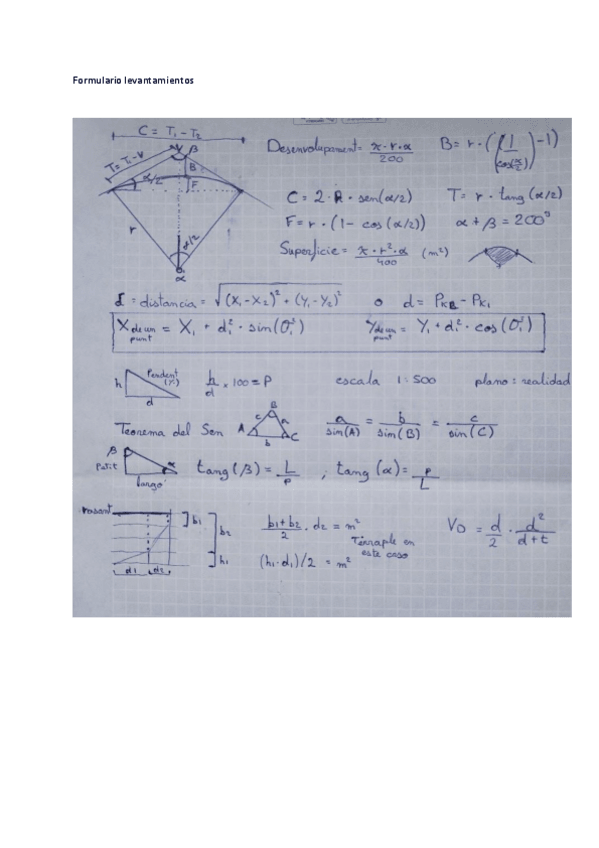 Formulario levantamientos
C = T₁ - T₂
T = T₁ - V
V β
B
F
α/2
r
α/2
α
Desenvolupament = π · r · α / 200
B = r · ((1 / cos(α/2)) - 1)
C = 2 · R · sen(α/2)
T = r · tang (α/2)
F = r · (1 - cos (α/2))
α + β = 200ᵍ
Superfície = π · r² · α / 400 (m²)
d = distancia = √(X₁ - X₂)² + (Y₁ - Y₂)² o d = PK₂ - PK₁
X de un punt = X₁ + d₁² · sin(θ₁²)
Y de un punt = Y₁ + d₁² · cos(θ₁²)
h
Pendent (%)
d
h/d × 100 = P
escala 1:500
plano : realidad
Teorema del Sen
A B C
a b c
a / sin(A) = b / sin(B) = c / sin(C)
β
Petit
α
largo
tang (β) = L / P ; tang (α) = P / L
Rasant
b₁
b₂
h₁
d₁ d₂
b₁ + b₂ / 2 · d₂ = m²
Terraple en este caso
(h₁ · d₁)/2 = m²
VD = d/2 · d² / d + t